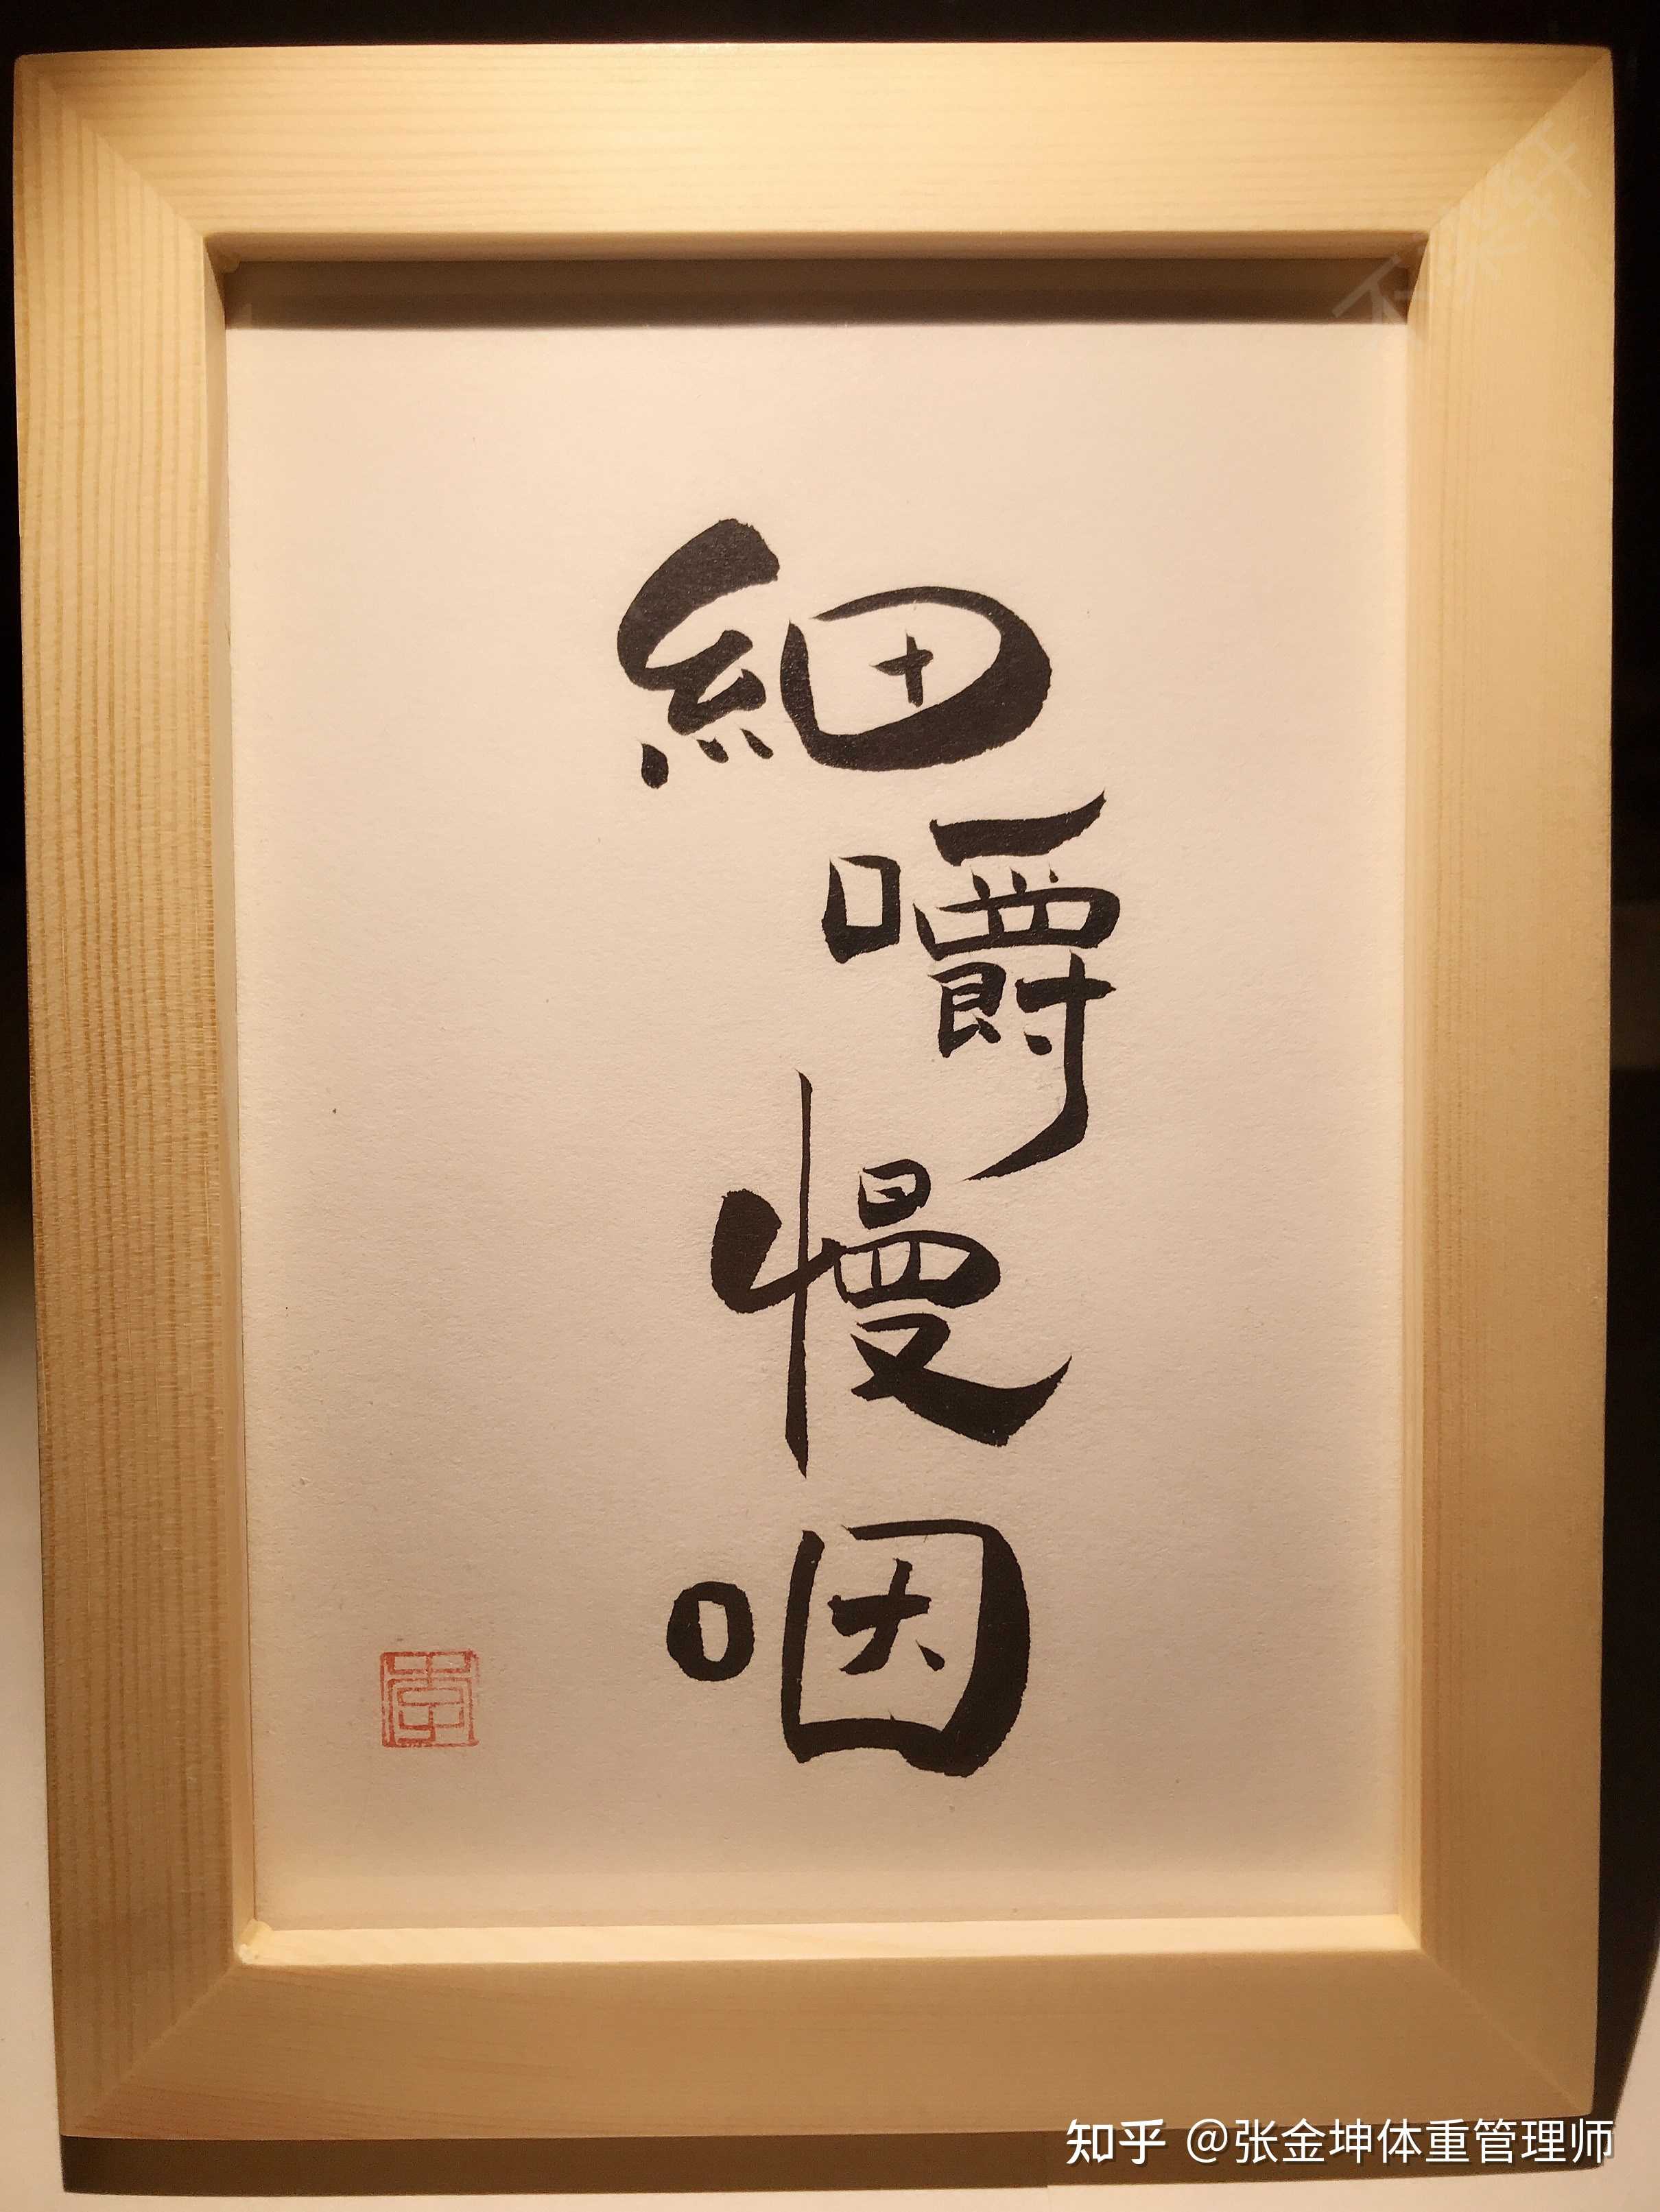 細
嚼
慢
咽
知乎 @张金坤体重管理师